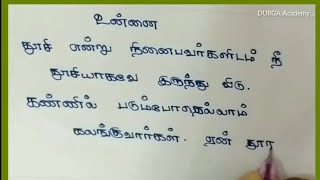 DURGA Academy
உன்னை
தூசி என்று நினைபவர்களிடம் நீ
தூசியாகவே இருந்து விடு.
கண்ணில் படும்போதெல்லாம்
கலங்குவார்கள். ஏன் தூர